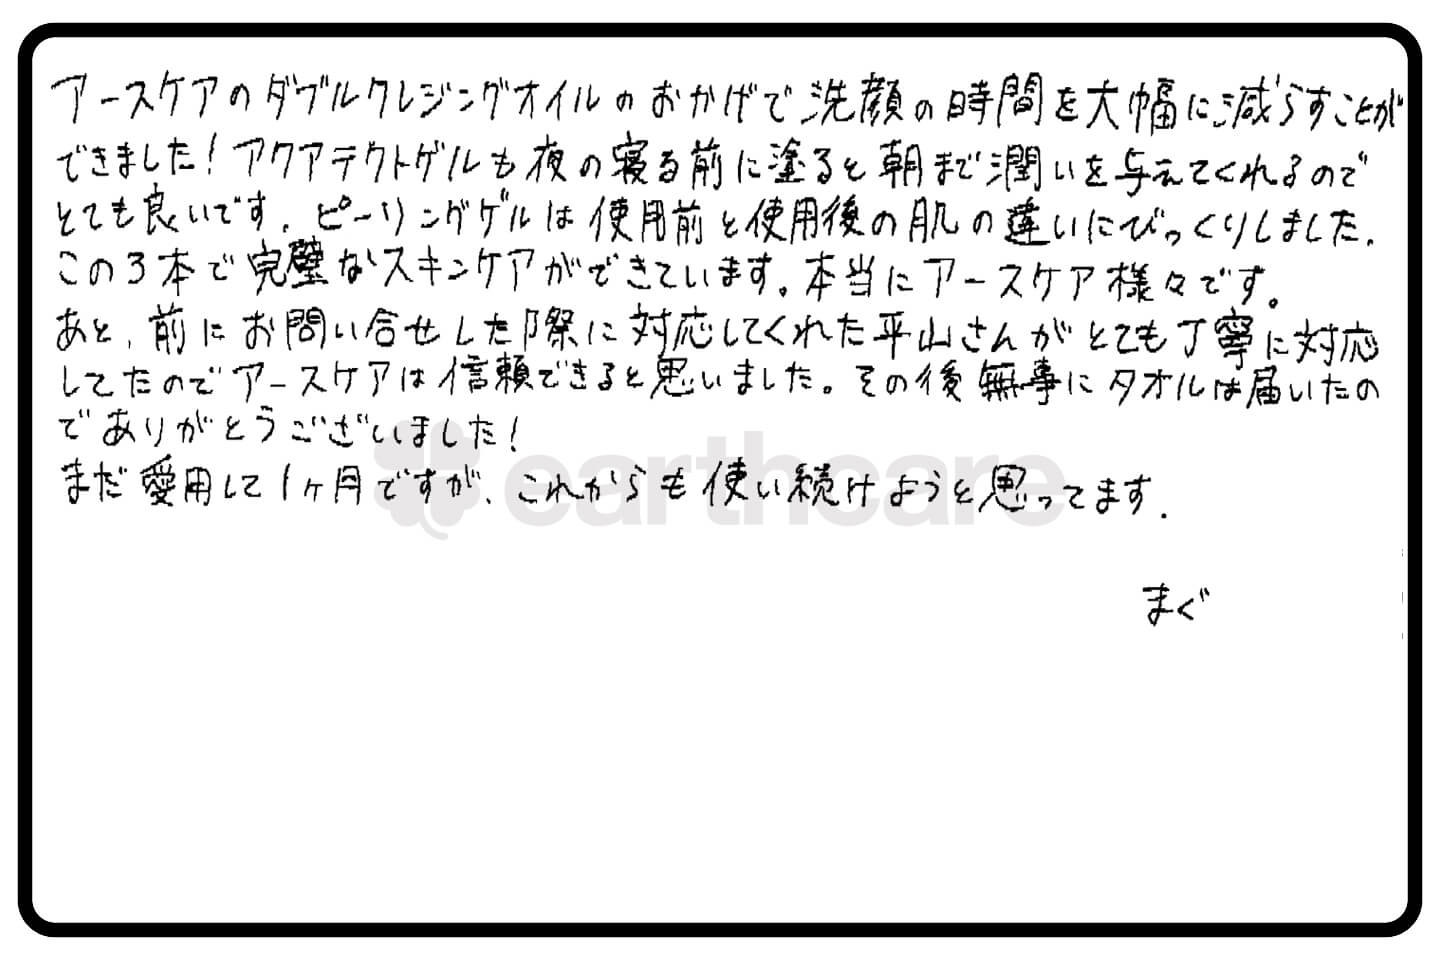 アースケアのダブルクレジングオイルのおかげで洗顔の時間を大幅に減らすことが
できました！アクアテクトゲルも夜の寝る前に塗ると朝まで潤いを与えてくれるので
とても良いです．ピーリングゲルは使用前と使用後の肌の違いにびっくりしました．
この3本で完璧なスキンケアができています。本当にアースケア様々です。
あと、前にお問い合せした際に対応してくれた平山さんがとても丁寧に対応
してたのでアースケアは信頼できると思いました。その後無事にタオルは届いたの
でありがとうございました！
まだ愛用して1ヶ月ですが、これからも使い続けようと思ってます．
earthcare
まぐ